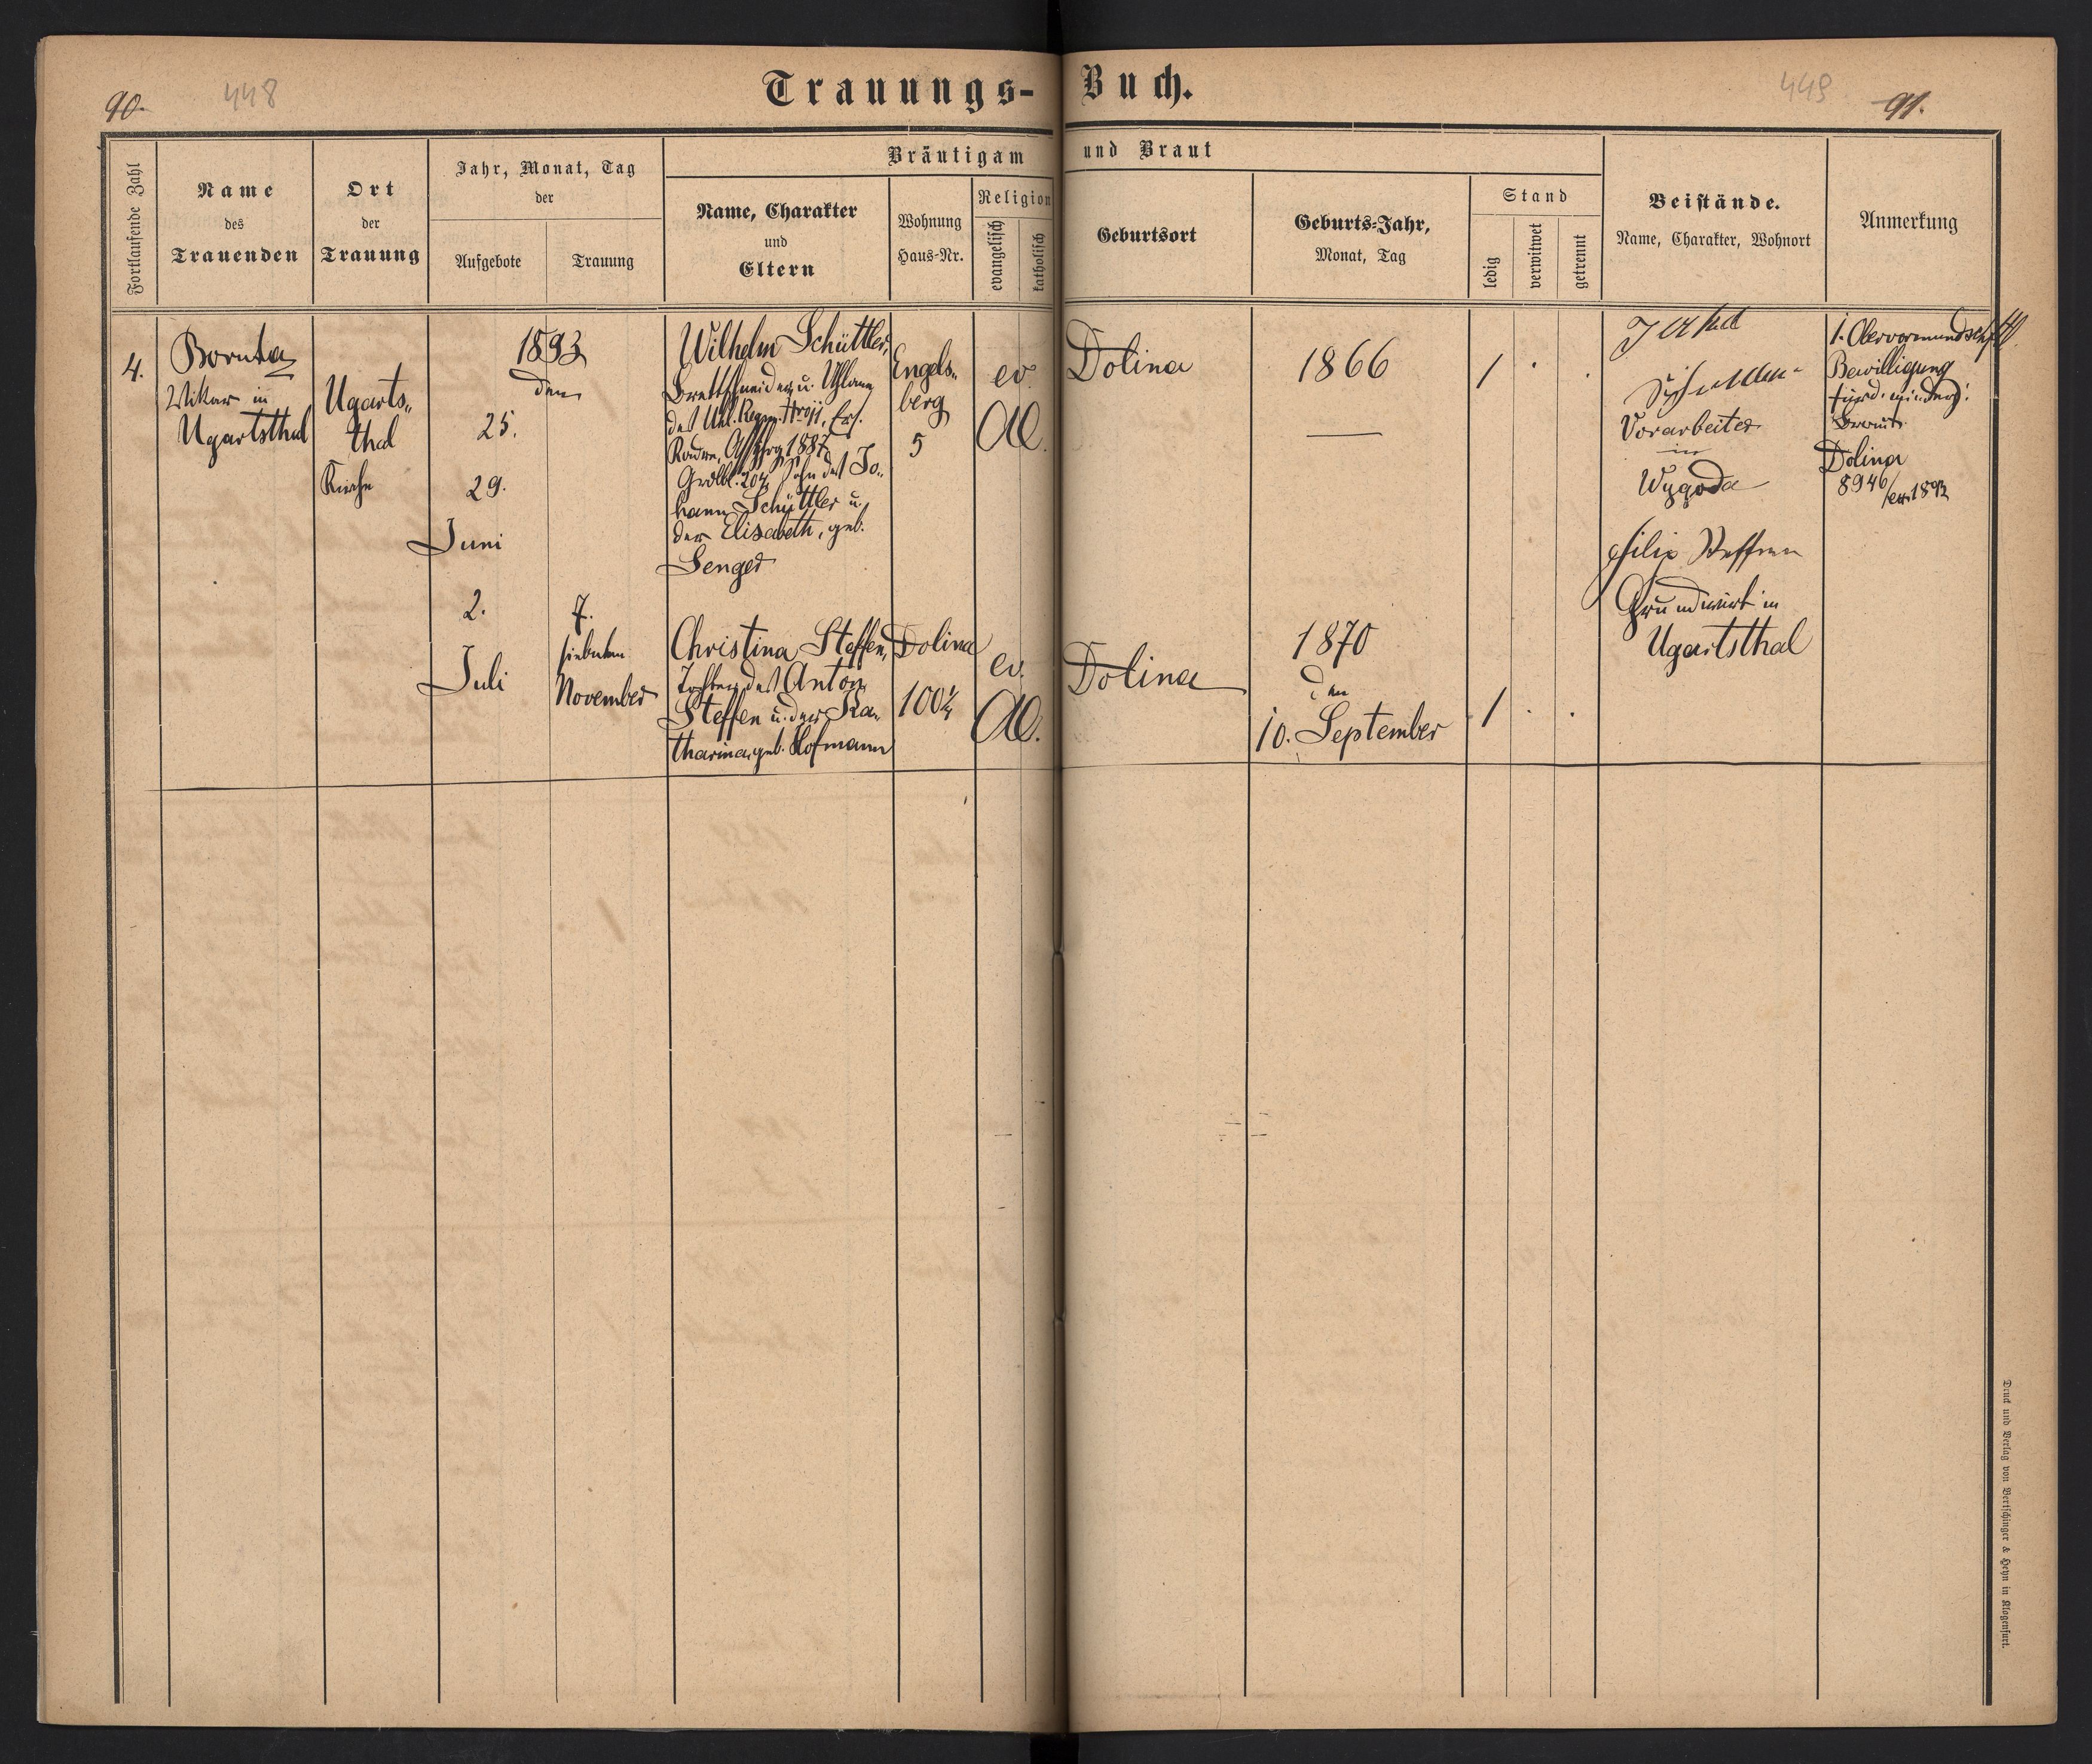 90.
448
Trauungs-Buch.
449
91.
Fortlaufende Zahl
Name
des
Trauenden
Ort
der
Trauung
Jahr, Monat, Tag
der
Aufgebote
Trauung
Bräutigam und Braut
Name, Charakter
und
Eltern
Wohnung
Haus-Nr.
Religion
evangelisch
katholisch
Geburtsort
Geburts-Jahr,
Monat, Tag
Stand
ledig
verwitwet
getrennt
Beistände.
Name, Charakter, Wohnort
Anmerkung
4.
Bornta
Vikar in
Ugartsthal
Ugarts„
thal
Kirche
1893
den
25.
29.
Juni
2.
Juli
7.
siebenten
November
Wilhelm Schüttler,
Brettschneider u. Uhlane
des Uhl. Regm.
1887
Grdbl. 204, Sohn des Jo„
hann Schüttler u.
der Elisabeth, geb.
Senger
Engels„
berg
5
ev.
AC.
Dolina
1866
—
1
Vorarbeiter
in
Wygoda
Filip Steffen
Grundwirt in
Ugartsthal
1. Obervormundschftl.
Bewilligung
für d. minderj:
Braut:
Dolina
8946/ex 1893
Christina Steffen,
Tochter des Anton
Steffen u. der Ka„
tharina, geb. Hofmann
Dolina
100¼
ev.
AC.
Dolina
1870
den
10. September
1
Druck und Verlag von Bertschinger & Heyn in Klagenfurt.